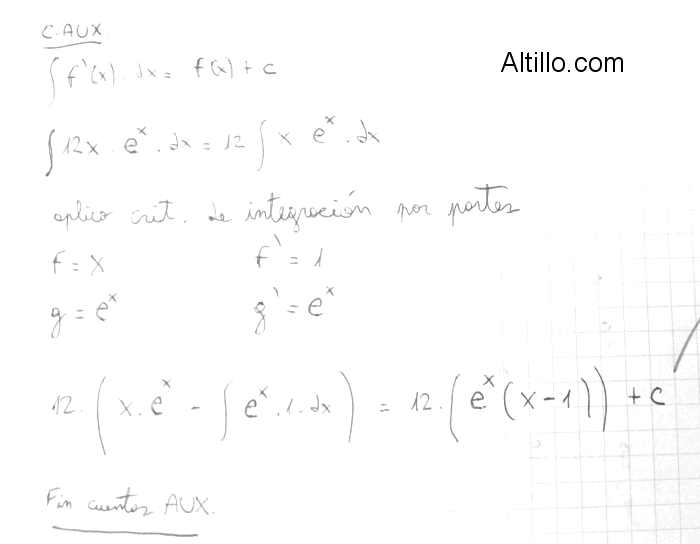 C.AUX.
Altillo.com
∫ f`(x) . dx = f(x) + c
∫ 12x . e^x . dx = 12 ∫ x . e^x . dx
aplico crit. de integración por partes
f = x f` = 1
g = e^x g` = e^x
12 . ( x . e^x - ∫ e^x . 1 . dx ) = 12 . ( e^x (x-1) ) + c
Fin cuentas AUX.